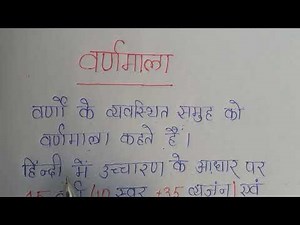 वर्णमाला
वर्णों के व्यवस्थित समुह को
वर्णमाला कहते हैं।
हिंन्दी में उच्चारण के आधार पर
45 वर्ण (10 स्वर +35 व्यजंन) एवं